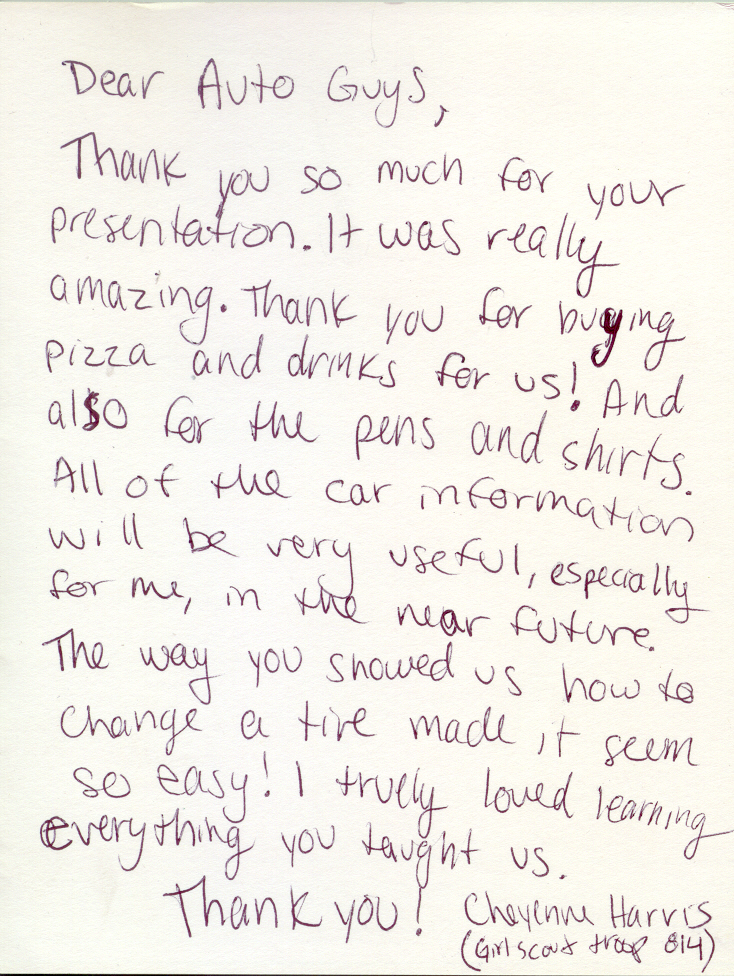 Dear Auto Guys,
Thank you so much for your
presentation. It was really
amazing. Thank you for buying
pizza and drinks for us! And
also for the pens and shirts.
All of the car information
will be very useful, especially
for me, in the near future.
The way you showed us how to
change a tire made it seem
so easy! I truely loved learning
everything you taught us.
Thank you! Cheyenne Harris
(Girl scout troop 814)